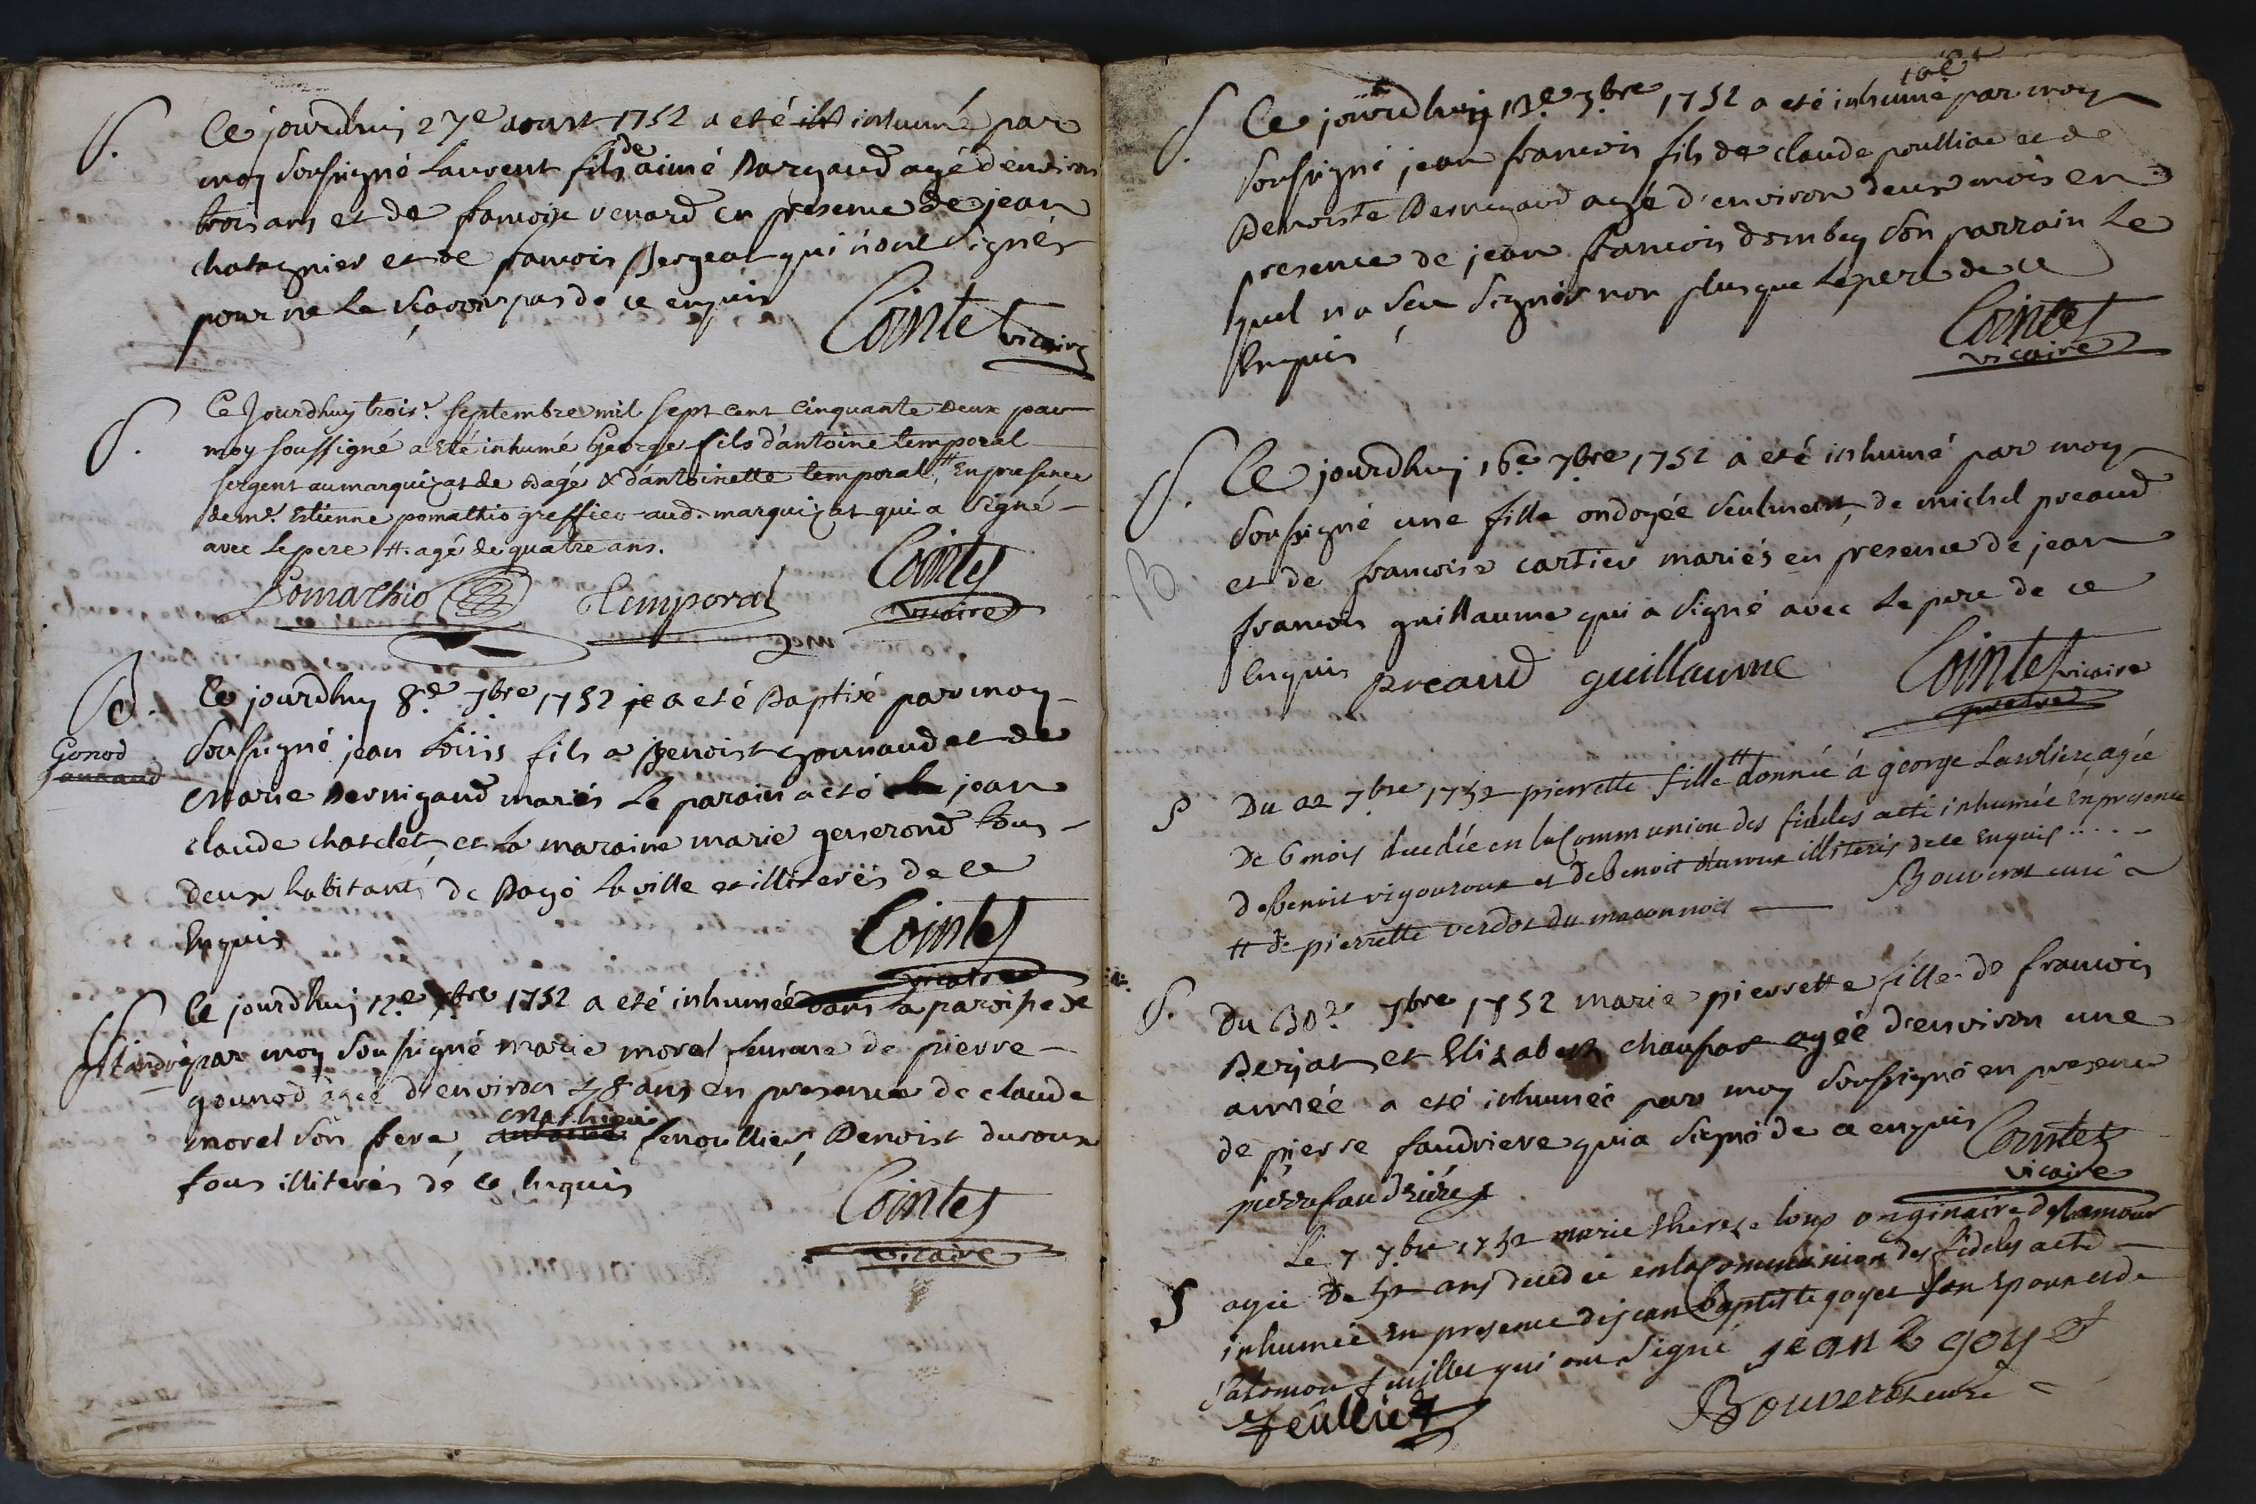 S. Ce jourdhuy 27e aoust 1752 a eté inhumé par
moy soussigné Laurent fils de aimé Dargaud agé d'environ
trois ans et de francoise renard en presence de jean
chatagnier et de francois Bergeat qui n'ont signés
pour ne le sçavoir pas de ce enquis
Cointet vicaire
S. Ce Jourdhuy trois.e septembre mil sept cent Cinquante deux par
moy soussigné a eté inhumé George fils d'antoine temporal
sergent au marquizat de bagé & d'antoinette temporal, # En presence
de me. Estienne pomathio greffier aud. marquizat qui a signé
avec le pere # agé de quatre ans.
Pomathio Temporal Cointet
vicaire
B. Ce jourdhuy 8.e 7bre 1752 je a eté Baptisé par moy
Gonod
soussigné jean Loüis fils a Benoist gounaud et de
Marie Dernigaud mariés le parain a eté jean
claude chatelet, et la maraine marie genserond tous
deux habitants de Bagé la ville et illiterés de ce
Enquis
Cointet
vicaire
S. Ce jourdhuy 12.e 7bre 1752 a eté inhumée dans la paroisse de
st andré par moy soussigné marie morel femme de pierre
gounod agée d'environ 48 ans en presence de claude
morel son frere, Mathieu fenoullier, Benoist duroux
tous illiterés de ce Enquis
Cointet
vicaire
S. Ce jourdhuy 13.e 7bre 1752 a eté inhumé par moy
soussigné jean francois fils de claude poulliac et de
Benoiste Dernigaud agé d'environ deux mois en
presence de jean francois dombey son parrain le
quel n'a sceu signer non plus que le pere de ce
Enquis
Cointet
vicaire
S. Ce jourdhuy 16.e 7bre 1752 a eté inhumé par moy
B soussigné une fille ondoyée seulment, de michel preaud
et de francoise cartier mariés en presence de jean
francois guillaume qui a signé avec le pere de ce
Enquis preaud guillaume Cointet vicaire
S Du 22 7bre 1752 pierrette fille # donnée á george Lavliere agée
De 6 mois decedée en la Communion des fideles a eté inhumée En presence
De benoit vigouroux et de benoit duroux illiterés de ce Enquis . . . .
# de pierrette verdot du maconnois Bouveret curé
S. Du 30.e 7bre 1752 marie pierrette fille de francois
Berjat et Elizabeth chanfor agéé d'environ une
année a eté inhumée par moy soussigné en presence
de pierre faudriere qui a signé de ce enquis Cointet
pierre faudriére vicaire
Le 7 7bre 1752 marie therese loup originaire de
S agée de 52 ans decedée en la Communion des fideles a eté
inhumée En presence de jean Baptiste goyet son Epoux et de
Salomon feuillet qui ont signé jean B goyet
feulliet Bouveret curé